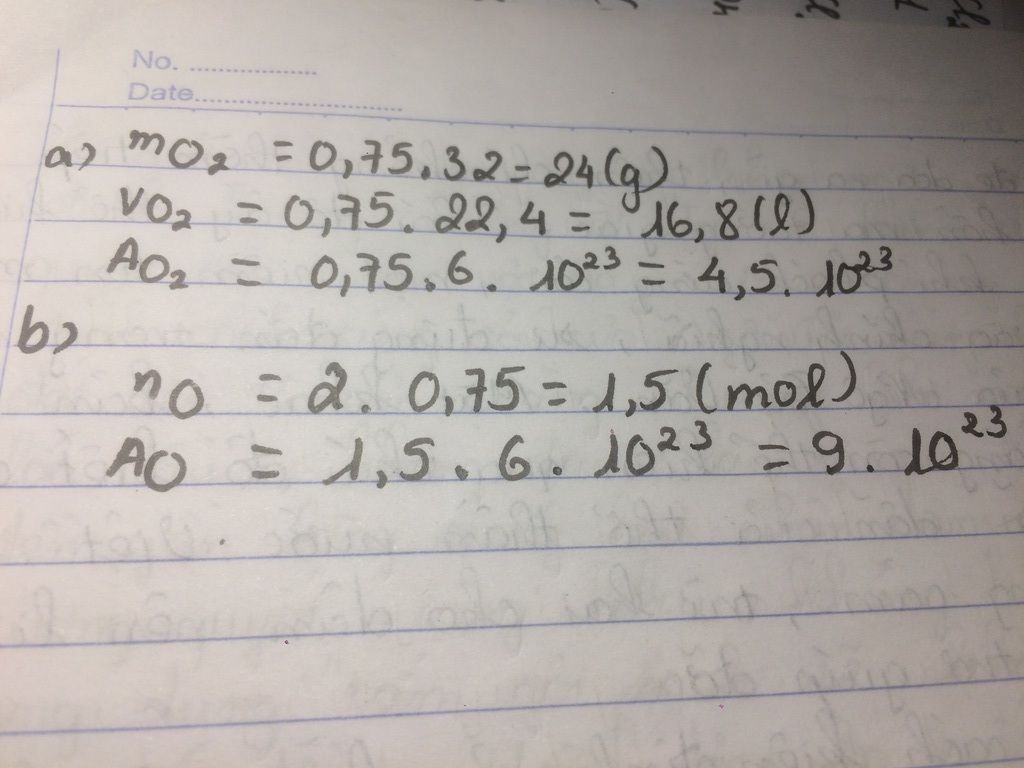 No. ..................
Date..............................
a) mO₂ = 0,75.32 = 24(g)
VO₂ = 0,75. 22,4 = 16,8 (l)
AO₂ = 0,75.6. 10²³ = 4,5. 10²³
b)
nO = 2. 0,75 = 1,5 (mol)
AO = 1,5. 6. 10²³ = 9. 10²³